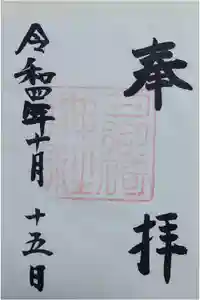 奉拝
令和四年十月十五日